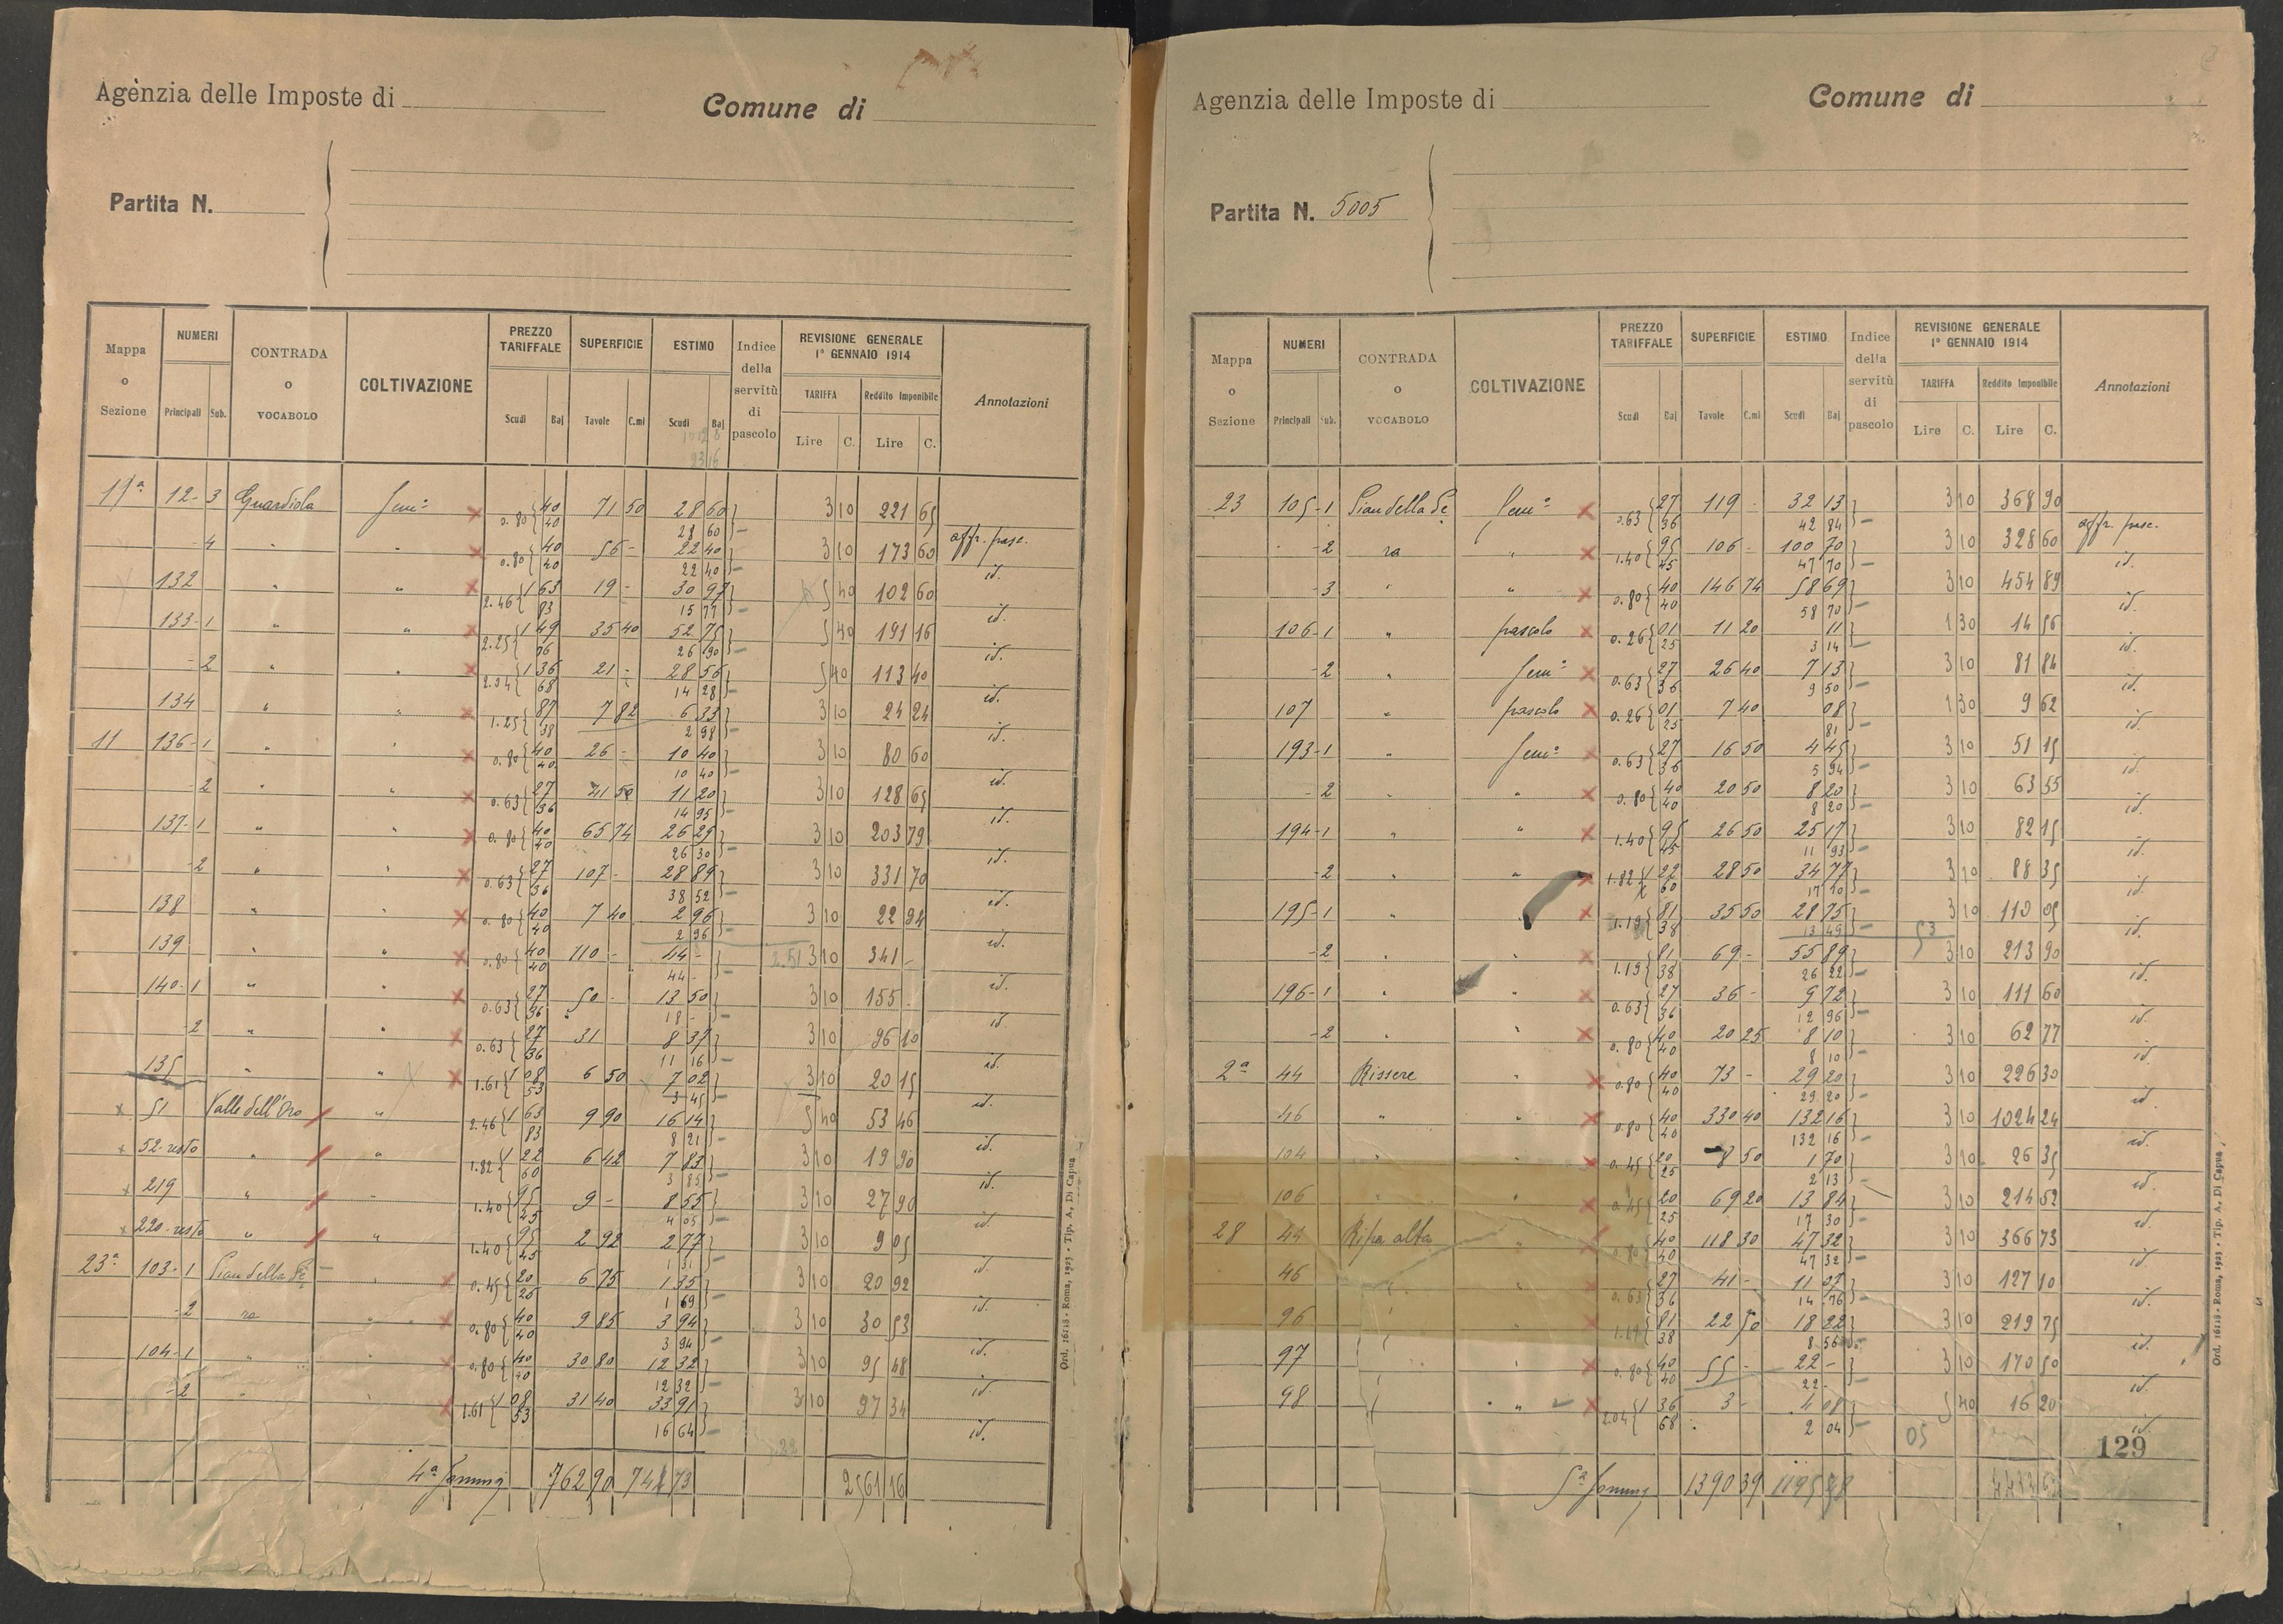 Agenzia delle Imposte di
Comune di
Partita N.
Mappa o Sezione | NUMERI Principali Sub. | CONTRADA o VOCABOLO | COLTIVAZIONE | PREZZO TARIFFALE Scudi Baj | SUPERFICIE Tavole C.mi | ESTIMO Scudi Baj | Indice della servitù di pascolo | REVISIONE GENERALE 1° GENNAIO 1914 TARIFFA Lire C. Reddito Imponibile Lire C. | Annotazioni
11ª 12-3 Guardiola Sem° 0.80 { 40 40 71 50 28 60 28 60 3 10 221 65 affr. pasc.
-4 " " 0.80 { 40 40 56 - 22 40 22 40 3 10 173 60 id.
132 " " 2.46 { 1 63 83 19 - 30 97 15 77 5 40 102 60 id.
133-1 " " 2.25 { 1 49 76 35 40 52 75 26 90 5 40 191 16 id.
-2 " " 2.04 { 1 36 68 21 - 28 56 14 28 5 40 113 40 id.
134 " " 1.25 { 87 38 7 82 6 33 2 98 3 10 24 24 id.
11 136-1 " " 0.80 { 40 40 26 - 10 40 10 40 3 10 80 60 id.
-2 " " 0.63 { 27 36 41 50 11 20 14 95 3 10 128 65 id.
137-1 " " 0.80 { 40 40 65 74 26 29 26 30 3 10 203 79 id.
-2 " " 0.63 { 27 36 107 - 28 89 38 52 3 10 331 70 id.
138 " " 0.80 { 40 40 7 40 2 96 2 96 3 10 22 94 id.
139 " " 0.80 { 40 40 110 - 44 - 44 - 3 10 341 - id.
140-1 " " 0.63 { 27 36 50 - 13 50 18 - 3 10 155 - id.
-2 " " 0.63 { 27 36 31 8 37 11 16 3 10 96 10 id.
135 " " 1.61 { 1 08 53 6 50 7 02 3 45 3 10 20 15 id.
51 Valle dell'Oro " 2.46 { 1 63 83 9 90 16 14 8 21 5 40 53 46 id.
52-resto " " 1.82 { 1 22 60 6 42 7 83 3 85 3 10 19 90 id.
219 " " 1.40 { 95 45 9 - 8 55 4 05 3 10 27 90 id.
220-resto " " 1.40 { 95 45 2 92 2 77 1 31 3 10 9 05 id.
23ª 103-1 Pian della Pe " 0.45 { 20 25 6 75 1 35 1 69 3 10 20 92 id.
-2 ra " 0.80 { 40 40 9 85 3 94 3 94 3 10 30 53 id.
104-1 " " 0.80 { 40 40 30 80 12 32 12 32 3 10 95 48 id.
-2 " " 1.61 { 1 08 53 31 40 33 91 16 64 3 10 97 34 id.
4ª Somma 762 90 73 2561 16
Ord. 16118 - Roma, 1923 - Tip. A. Di Capua
Agenzia delle Imposte di
Comune di
Partita N. 5005
Mappa o Sezione | NUMERI Principali Sub. | CONTRADA o VOCABOLO | COLTIVAZIONE | PREZZO TARIFFALE Scudi Baj | SUPERFICIE Tavole C.mi | ESTIMO Scudi Baj | Indice della servitù di pascolo | REVISIONE GENERALE 1° GENNAIO 1914 TARIFFA Lire C. Reddito Imponibile Lire C. | Annotazioni
23 105-1 Pian della Pe Sem° 0.63 { 27 36 119 - 32 13 42 84 3 10 368 90 affr. pasc.
-2 ra " 1.40 { 95 45 106 - 100 70 47 70 3 10 328 60 id.
-3 " " 0.80 { 40 40 146 74 58 69 58 70 3 10 454 89 id.
106-1 " pascolo 0.26 { 01 25 11 20 11 3 14 1 30 14 56 id.
-2 " Sem° 0.63 { 27 36 26 40 7 13 9 50 3 10 81 84 id.
107 " pascolo 0.26 { 01 25 7 40 08 81 1 30 9 62 id.
193-1 " Sem° 0.63 { 27 36 16 50 4 45 5 94 3 10 51 15 id.
-2 " " 0.80 { 40 40 20 50 8 20 8 20 3 10 63 55 id.
194-1 " " 1.40 { 95 45 26 50 25 17 11 93 3 10 82 15 id.
-2 " " 1.82 { 1 22 60 28 50 34 77 17 10 3 10 88 35 id.
195-1 " " 1.19 { 81 38 35 50 28 75 13 49 3 10 110 05 id.
-2 " " 1.19 { 81 38 69 - 55 89 26 22 3 10 213 90 id.
196-1 " " 0.63 { 27 36 36 - 9 72 12 96 3 10 111 60 id.
-2 " " 0.80 { 40 40 20 25 8 10 8 10 3 10 62 77 id.
2ª 44 Rissere " 0.80 { 40 40 73 - 29 20 29 20 3 10 226 30 id.
46 " " 0.80 { 40 40 330 40 132 16 132 16 3 10 1024 24 id.
104 " " 0.45 { 20 25 8 50 1 70 2 13 3 10 26 35 id.
106 " " 0.45 { 20 25 69 20 13 84 17 30 3 10 214 52 id.
28 44 Ripa alta " 0.80 { 40 40 118 30 47 32 47 32 3 10 366 73 id.
46 " " 0.63 { 27 36 41 - 11 07 14 76 3 10 127 10 id.
96 " " 1.19 { 81 38 22 50 18 22 8 56 3 10 219 75 id.
97 " " 0.80 { 40 40 55 - 22 - 22 - 3 10 170 50 id.
98 " " 2.04 { 1 36 68 3 - 4 08 2 04 5 40 16 20 id.
05
129
5ª Somma 1390 39
Ord. 16118 - Roma, 1923 - Tip. A. Di Capua